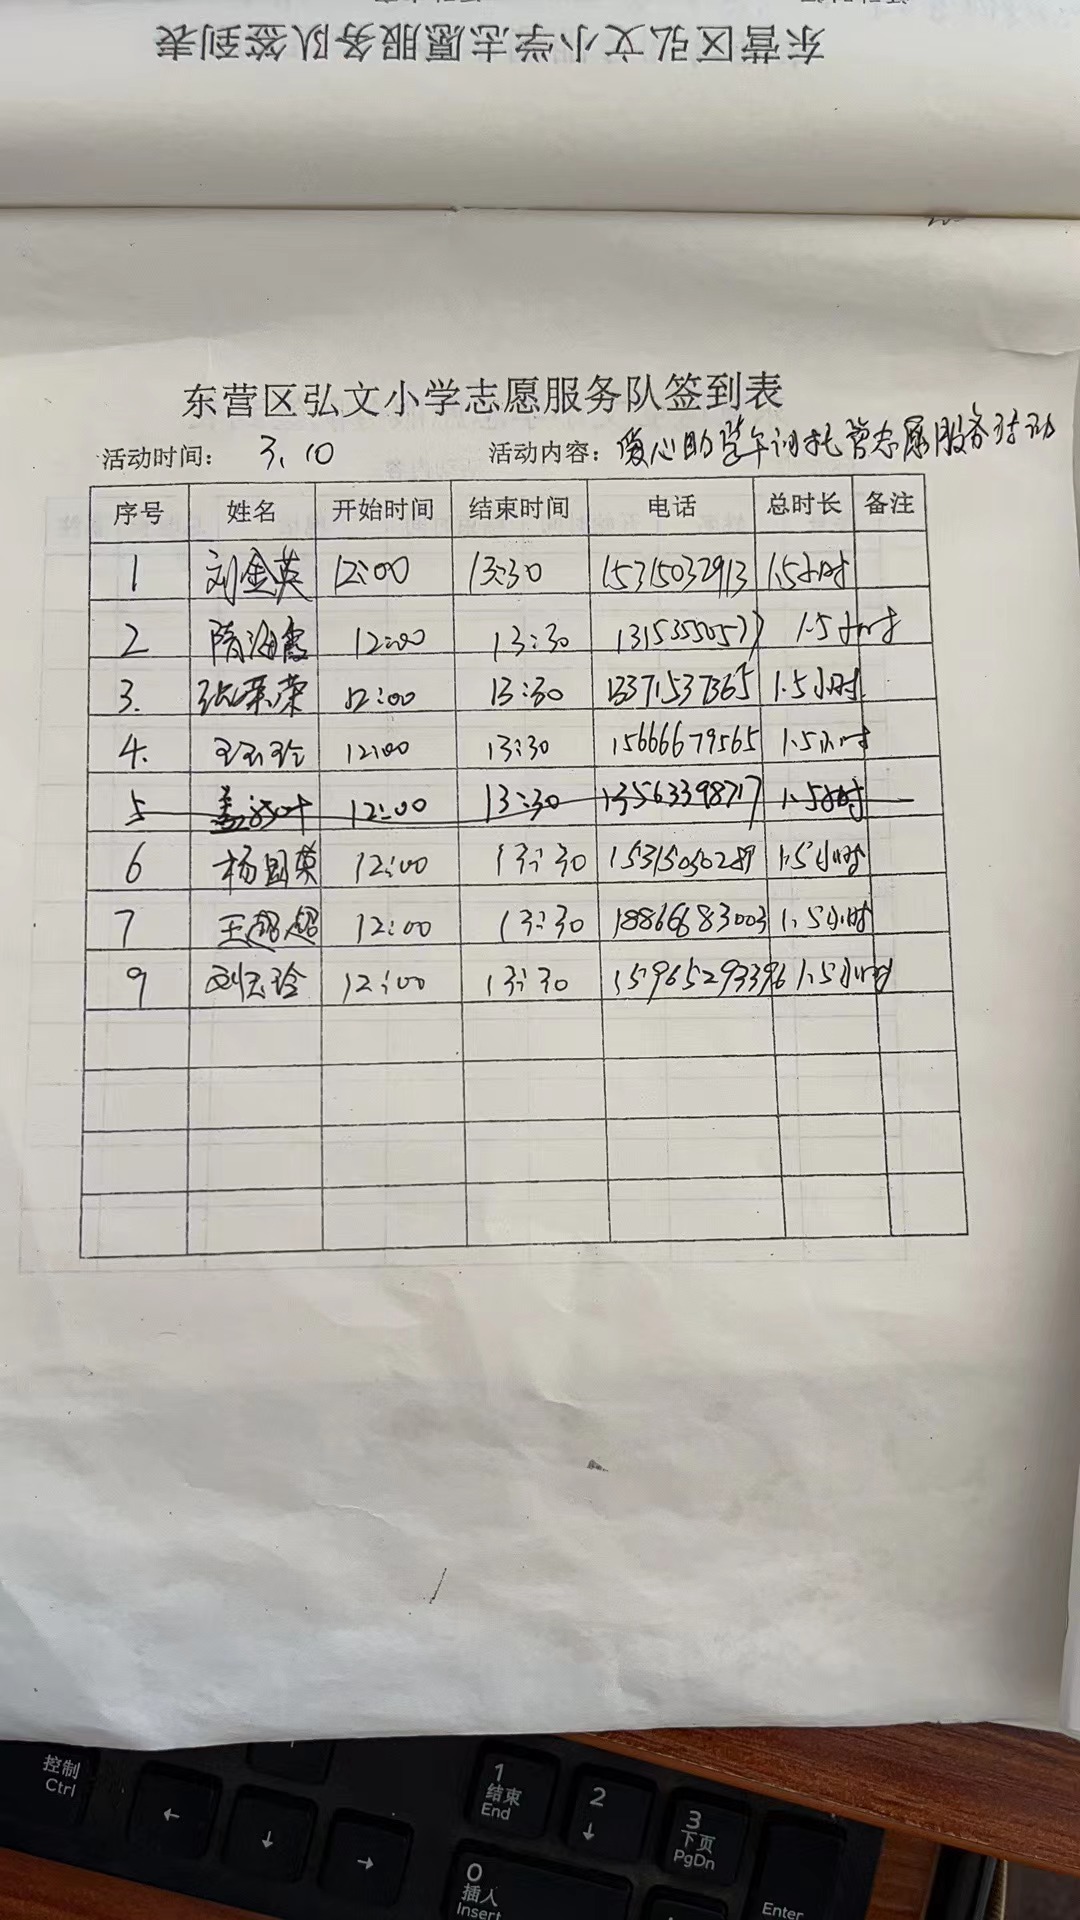 东营区弘文小学志愿服务队签到表
东营区弘文小学志愿服务队签到表
活动时间： 3.10 活动内容：爱心助学午间托管志愿服务活动
序号 姓名 开始时间 结束时间 电话 总时长 备注
1 刘金英 12:00 13:30 15315032913 1.5小时
2 隋海霞 12:00 13:30 13153550577 1.5小时
3. 张荣荣 12:00 13:30 13371537365 1.5小时
4. 12:00 13:30 15666679565 1.5小时
5 12:00 13:30 13563398717 1.5小时
6 杨国英 12:00 13:30 15315050289 1.5小时
7 王超超 12:00 13:30 18866683003 1.5小时
9 刘志玲 12:00 13:30 15965293396 1.5小时
控制
Ctrl
←
↓
→
1
结束
End
2
↓
3
下页
PgDn
0
插入
Insert
Enter